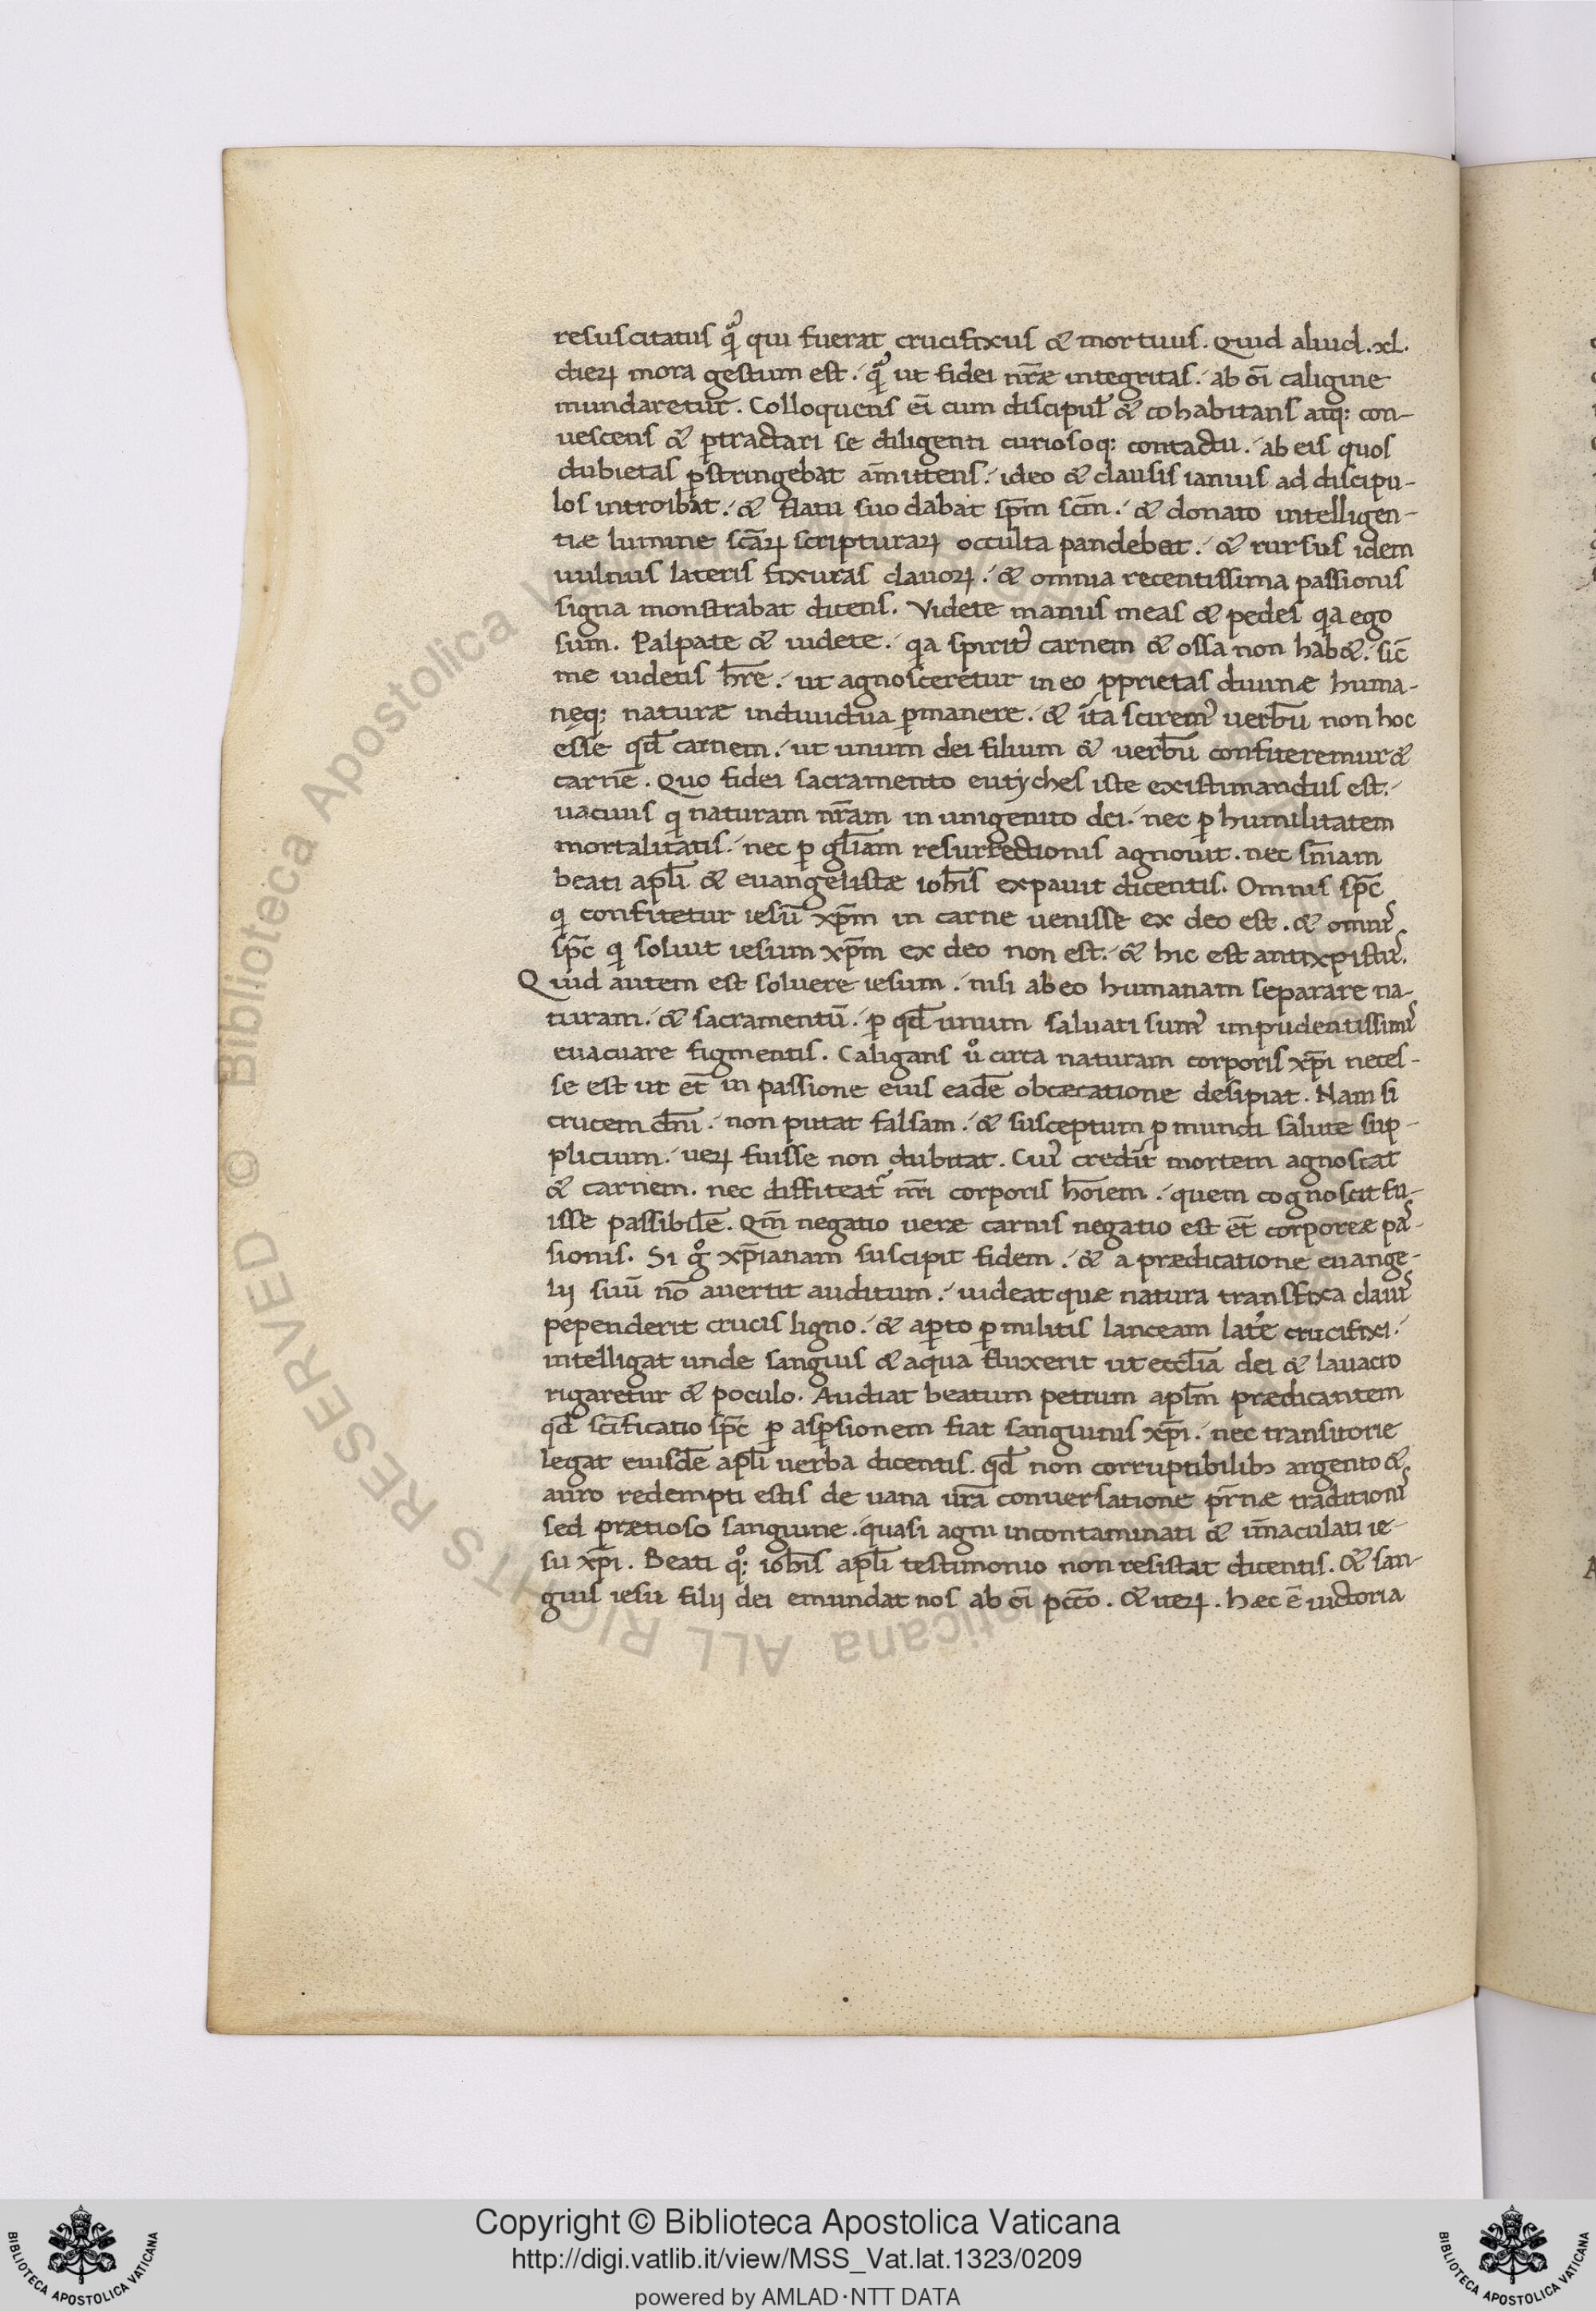 resuscitatus q̃ qui fuerat crucifixus & mortuus. Quid aliud .xl.
dieꝝ mora gestum est. q̃ ut fidei nr̃æ integritas. ab oĩ caligine
mundaretur. Colloquens eĩ cum discipul̃ & cohabitans atq: con-
uescens & ꝑtractari se diligenti curiosoq: contactu. ab eis quos
dubietas ꝑstringebat am̃ittens. ideo & clausis ianuis ad discipu-
los introibat. & flatu suo dabat sp̃m scm̃. & donato intelligen-
tiæ lumine scãꝝ scripturaꝝ occulta pandebat. & rursus idem
uulnus lateris fixuras clauoꝝ. & omnia recentissima passionis
signa monstrabat dicens. Videte manus meas & pedes qa ego
sum. Palpate & uidete. qa spirit᾽ carnem & ossa non hab&. sic̃
me uidetis hr̃e. ut agnosceretur in eo ꝓprietas diuinæ huma-
neq: naturæ indiuidua ꝑmanere. & ita scirem᾽ uerbũ non hoc
esse qd̃ carnem. ut unum dei filium & uerbũ confiteremur &
carnẽ. Quo fidei sacramento eutyches iste existimandus est.
uacuus q̃ naturam nr̃am in unigenito dei. nec ꝑ humilitatem
mortalitatis. nec ꝑ gl̃iam resurrectionis agnouit. nec sñiam
beati apl̃i & euangelistæ ioh̃is expauit dicentis. Omnis sp̃c
q confitetur iesũ xp̃m in carne uenisse ex deo est. & omnis
sp̃c q soluit iesum xp̃m ex deo non est. & hic est antixpistus.
Quid autem est soluere iesum. nisi ab eo humanam separare na-
turam. & sacramentũ. ꝑ qd̃ unum saluati sum᾽ impudentissimis
euacuare figmentis. Caligans uͦ circa naturam corporis xp̃i neces-
se est ut et̃ in passione eius eadẽ obcæcatione desipiat. Nam si
crucem dñi. non putat falsam. & susceptum ꝓ mundi salute sup-
plicium. ueꝝ fuisse non dubitat. Cui᾽ credit mortem agnoscat
& carnem. nec diffiteat᾽ nr̃i corporis ho͞iem. quem cognoscit fu-
isse passibilẽ. Qm̃ negatio ueræ carnis negatio est et̃ corporeæ pas-
sionis. Si gͦ xp̃ianam suscipit fidem. & a prædicatione euange-
lij suũ nõ auertit auditum. uideat quæ natura transfixa clauis
pependerit crucis ligno. & aꝑto ꝑ militis lanceam latere crucifixi.
intelligat unde sanguis & aqua fluxerit ut eccl̃ia dei & lauacro
rigaretur & poculo. Audiat beatum petrum apl̃m prædicantem
qd̃ sc̃ificatio sp̃c ꝑ asꝑsionem fiat sanguinis xp̃i. nec transitorie
legat eiusdẽ apl̃i uerba dicentis. qd̃ non corruptibilibꝫ argento &
auro redempti estis de uana ur̃a conuersatione pr̃næ traditionis
sed prætioso sanguine. quasi agni incontaminati & im̃aculati ie-
su xp̃i. Beati qͦ: ioh̃is apl̃i testimonio non resistat dicentis. & san-
guis iesu filij dei emundat nos ab oĩ pcc̃o. & ueꝝ. hæc ẽ uictoria
Copyright © Biblioteca Apostolica Vaticana
http://digi.vatlib.it/view/MSS_Vat.lat.1323/0209
powered by AMLAD·NTT DATA
BIBLIOTECA APOSTOLICA VATICANA
BIBLIOTECA APOSTOLICA VATICANA